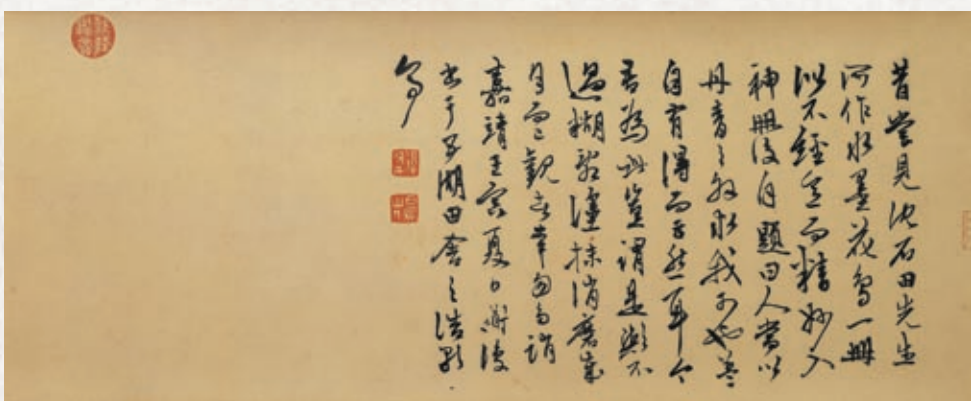 昔嘗見沈石田先生
所作水墨花鳥一冊
似不經意而精妙入
神冊後自題曰人當以
丹青之外求我可也蓋
自有得而云然耳今
吾為此豈謂是歟不
過糊抹消磨歲
月而已觀者幸勿誚
嘉靖壬寅夏日道復
書于五湖田舍之浩歌
亭